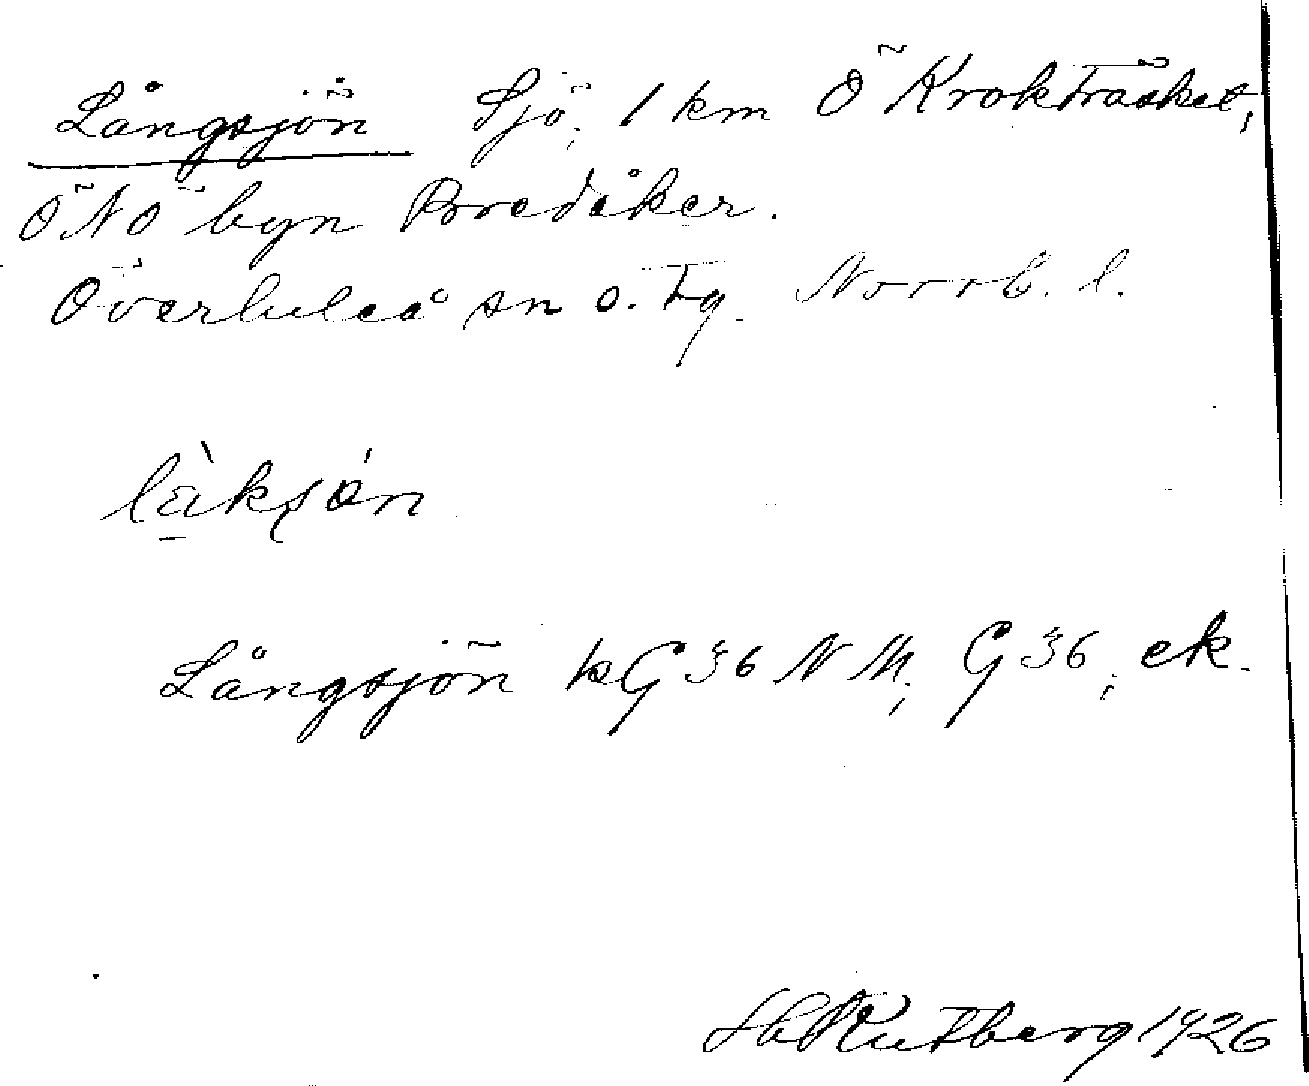 Långsjön Sjö, 1 km Ö Krokträsket,
ÖNÖ byn Boredåker.
Överluleå sn o. tg. Norrb. l.
làksjón
Långsjön kG 36 NM; G 36; ek.
Hb Rutberg 1926